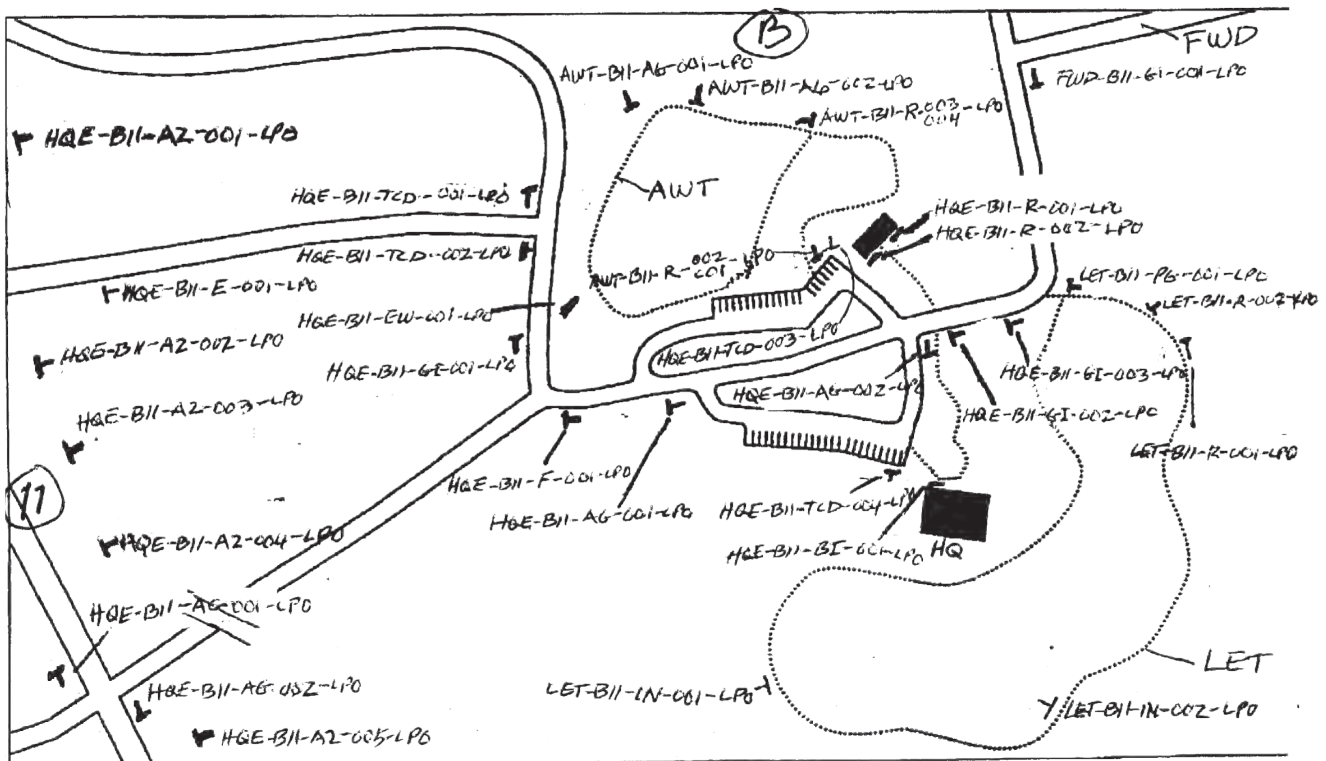 B
FWD
AWT-B11-AG-001-LPO
AWT-B11-AG-002-LPO
FWD-B11-GI-001-LPO
AWT-B11-R-003-LPO
004
HQE-B11-A2-001-LPO
AWT
HQE-B11-TCD-001-LPO
HQE-B11-R-001-LPO
HQE-B11-R-002-LPO
HQE-B11-TCD-002-LPO
AWT-B11-R-002-LPO
001
LET-B11-PG-001-LPO
HQE-B11-E-001-LPO
LET-B11-R-002-LPO
HQE-B11-EW-001-LPO
HQE-B11-A2-002-LPO
HQE-B11-TCD-003-LPO
HQE-B11-GI-001-LPO
HQE-B11-GI-003-LPO
HQE-B11-AG-002-LPO
HQE-B11-A2-003-LPO
HQE-B11-GI-002-LPO
LET-B11-R-001-LPO
HQE-B11-F-001-LPO
11
HQE-B11-AG-001-LPO
HQE-B11-TCD-004-LPO
HQE-B11-A2-004-LPO
HQE-B11-BI-001-LPO
HQ
HQE-B11-AG-001-LPO
LET
HQE-B11-AG-002-LPO
LET-B11-IN-001-LPO
LET-B11-IN-002-LPO
HQE-B11-A2-005-LPO